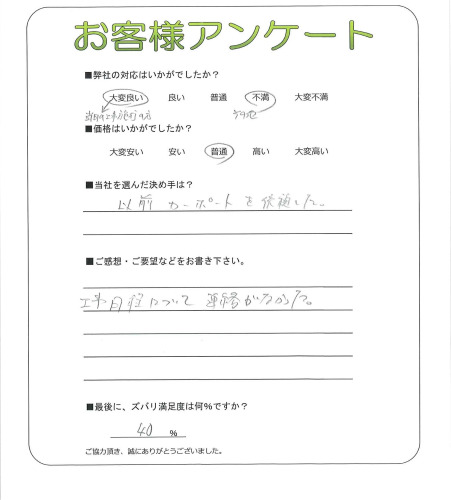 お客様アンケート
■弊社の対応はいかがでしたか？
大変良い 良い 普通 不満 大変不満
その他
■価格はいかがでしたか？
大変安い 安い 普通 高い 大変高い
■当社を選んだ決め手は？
以前カーポートを依頼した。
■ご感想・ご要望などをお書き下さい。
工事日程について連絡がなかった。
■最後に、ズバリ満足度は何％ですか？
40 ％
ご協力頂き、誠にありがとうございました。